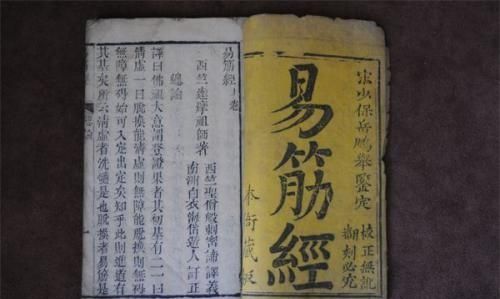 宋少保岳鵬舉鑒定
校正無訛
翻刻必究
易筋經
本衙藏板
易筋經上卷
西竺達摩祖師著
西竺聖僧般刺密諦譯義
南洲白衣海岱遊人訂正
總論
譯曰佛祖大意謂登證果者其初基有二一曰
清虛一曰脫換能清虛則無障能脫換則無碍
無障無碍始可入定出定矣知乎此則進道有
其基矣所云清虛者洗髓是也脫換者易筋是